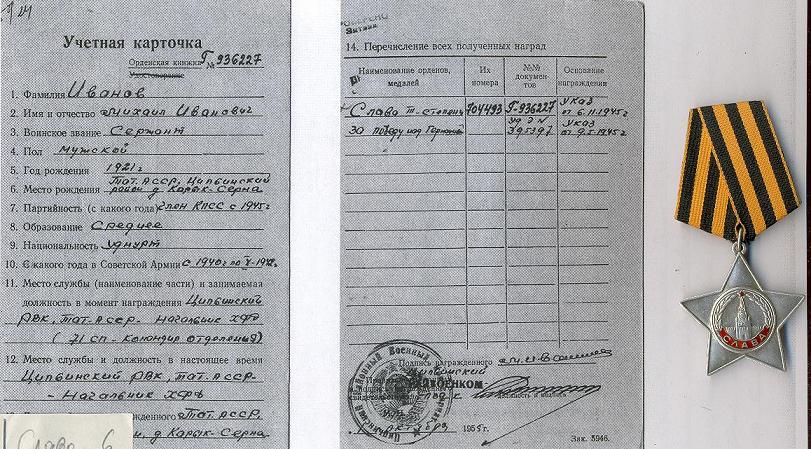 Учетная карточка
Орденская книжка № Г-936227
Удостоверение
1. Фамилия Иванов
2. Имя и отчество Михаил Иванович
3. Воинское звание Сержант
4. Пол мужской
5. Год рождения 1921 г
6. Место рождения Тат.АССР, Ципьинский
район д. Карык-Серма
7. Партийность (с какого года) Член КПСС с 1945 г
8. Образование Среднее
9. Национальность удмурт
10. С какого года в Советской Армии с 1940 г по
11. Место службы (наименование части) и занимаемая
должность в момент награждения Ципьинский
РВК, Тат.АССР. Начальник ХФО
(71 сп - Командир отделения)
12. Место службы и должность в настоящее время
Ципьинский РВК, Тат.АССР-
- Начальник ХФО
Тат.АССР,
д. Карык-Серма
Слава 6
14. Перечисление всех полученных наград
Наименование орденов, медалей
Их номера
№№ документов
Основание награждения
Слава III-степени 704493 Г-936227 Указ от 6.11.1945 г
За победу над Германией уд Э N 395397 Указ от 9.5.1945 г
Подпись награжденного
Ципьинский
Райвоенком
октября 1955 г.
Зак. 5946.
СЛАВА